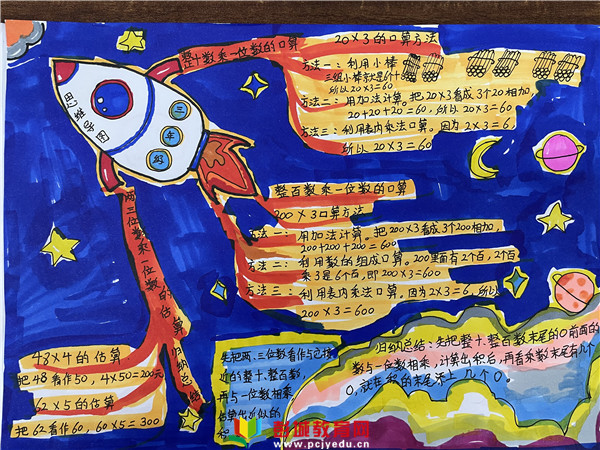 思维导图
三年级
整十数乘一位数的口算
20×3的口算方法
方法一：利用小棒
三组小棒
所以20×3=60
方法二：用加法计算。把20×3看成3个20相加，
20+20+20=60，所以20×3=60
方法三：利用表内乘法口算。因为2×3=6，
所以20×3=60
整百数乘一位数的口算
200×3口算方法
方法一：用加法计算。把200×3看成3个200相加，
200+200+200=600
方法二：利用数的组成口算。200里面有2个百，2个百
乘3是6个百，即200×3=600
方法三：利用表内乘法口算。因为2×3=6，所以
200×3=600
两三位数乘一位数的估算
归纳总结
48×4的估算
把48看作50，4×50=200元
62×5的估算
把62看作60，60×5=300
先把两、三位数看作与它接
近的整十、整百数，
再与一位数相乘
归纳总结：先把整十、整百数末尾的0前面的
数与一位数相乘，计算出积后，再看乘数末尾有几个
0，就在积的末尾添上几个0。
教育网
www.pcjyedu.cn